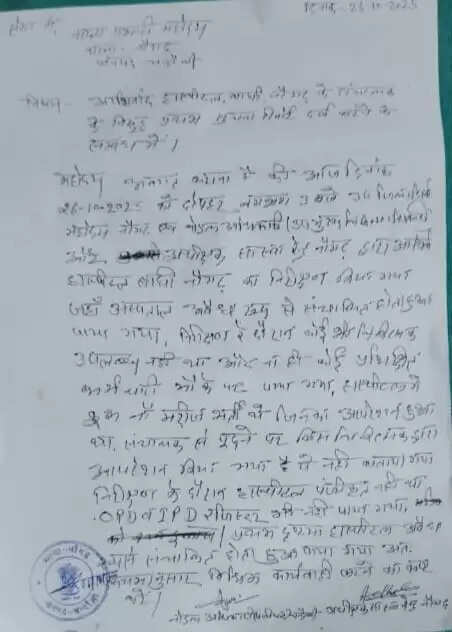 दिनांक- 26-10-2025
सेवा में,
थाना प्रभारी महोदय
थाना- नौगढ़
जनपद चन्दौली
विषय- आशीर्वाद हास्पीटल, बाघी नौगढ़ के संचालक
के विरूद्ध प्रथम सूचना रिपोर्ट दर्ज करने के
सम्बन्ध में।
महोदय, अवगत कराना है की आज दिनांक
26-10-2025 को दोपहर लगभग 3 बजे उप जिलाधिकारी
महोदय नौगढ़ एवं नोडल अधिकारी
और अधीक्षक, नौगढ़ द्वारा आशीर्वाद
हास्पीटल बाघी नौगढ़ का निरीक्षण किया गया
जहाँ अस्पताल अवैध रूप से संचालित होता हुआ
पाया गया, निरीक्षण के दौरान कोई भी चिकित्सक
उपलब्ध नही था और ना ही कोई प्रशिक्षित
कर्मचारी मौके पर पाया गया, हास्पीटल में
कुल नौ मरीज भर्ती थे जिनका आपरेशन हुआ
था, संचालक से पूछने पर किस चिकित्सक द्वारा
आपरेशन किया गया है ये नही बताया गया
निरीक्षण के दौरान हास्पीटल पंजीकृत नही था
OPD व IPD रजिस्टर भी नही पाया गया,
प्रथम दृष्टया हास्पीटल अवैध
संचालित होता हुआ पाया गया अतः
नियमानुसार विधिक कार्यवाही करने का कष्ट
करें।
नोडल अधीक्षक नौगढ़